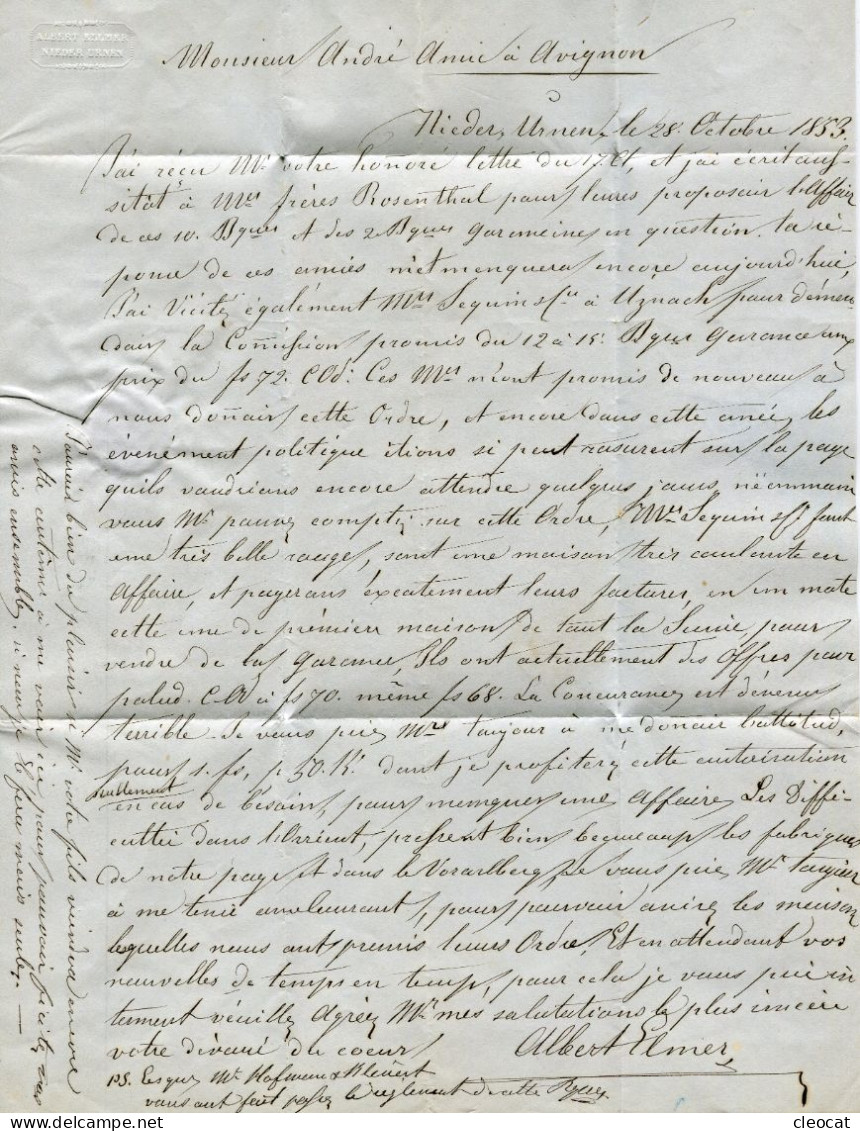 ALBERT ELMER
NIEDER URNEN
Monsieur André Amic à Avignon
Nieder, Urnen, le 28. Octobre 1853.
J'ai réçu Mr votre honoré lettre du 17. Ct, et j'ai écrit aus-
sitôt à Mrs frères Rosenthal pour leures proposair l'affair
de ces 10. Bques et des 2 Bques garancines en question, la ré-
ponse de ces amies n'et menquera encore aujourd'hui,
J'ai Vicité également Mrs Seguin & Cie à Uznach pour démen-
dair la Comission promis du 12 à 15. Bques garance aux
prix du fs 72. COd. Ces Mrs m'ont promis de nouveau à
nous donnair cette Ordre, et encore dans cette année, les
événément politique itions si peut rasurent sur la page
quils vaudrions encore attendre quelques jours, néenmain
vous Mr pauvez compter sur cette Ordre, Mrs Seguin & Cie font
une très belle rouge, sont une maison très coulante en
affaire, et payerons éxcatement leurs factures, en un mote
cette une de prémiere maison de tout la Suisse, pour
vendre de las garance, Ils ont actuellement des Offres pour
palud. COd à fs 70. même fs 68. La Concurance est dévenus
terrible. Je vous prie Mr taujour à me donair lattitud,
pour 1. fs, p 50. K. dont je profiteré cette autorisation
seullement
en cas de bésain, pour menquer une affaire, Les Diffi-
cultié dans l'Orient, pressent bien beaucaup les fabriques
de notre page et dans le Vorarlberg, Je vous prie Mr taujour
à me tenir au courant, pour pouvoir avirer les meison
lequelles nous ont promis leurs Ordre, Et en attendant vos
nouvelles de temps en temps, pour cela je vous prie in-
stament véuillez Agréez Mr mes salutations le plus sincère
votre dévoué du coeur Albert Elmer
PS. Esque Mr Hofmann & Blevert
vous ont fait passer le règlement de cette Bques
J'aurais bien du plaisir si Mr votre fils viendra encore
cette automne à me voir ici pour pauvoir visitez nos
amis ensemble, si non je le ferai mois seule. —